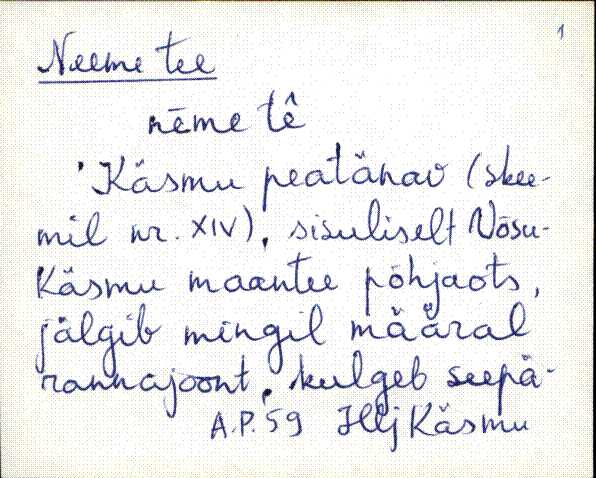 1
Neeme tee
nēme tê
Käsmu peatänav (skee-
mil nr. XIV), sisuliselt Võsu-
Käsmu maantee põhjaots,
jälgib mingil määral
rannajoont, kulgeb seepä-
A.P. 59 Hlj Käsmu